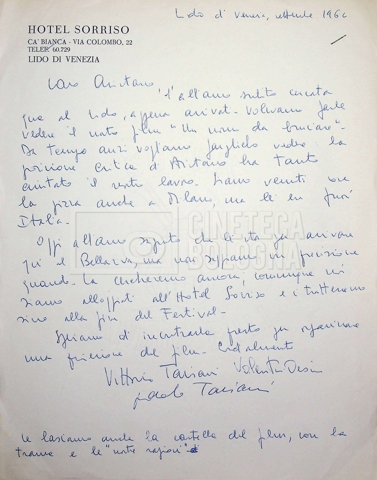 HOTEL SORRISO
CA' BIANCA - VIA COLOMBO, 22
TELEF. 60.729
LIDO DI VENEZIA
Lido di Venezia, settembre 1962
Caro Aristarco,
l'abbiamo subito cercata
qua al Lido, appena arrivati. Volevamo farle
vedere il nostro film "Un uomo da bruciare".
Da tempo anzi vogliamo farglielo vedere: la
posizione critica di Aristarco ha tanto
aiutato il nostro lavoro. Siamo venuti con
la pizza anche a Milano, ma lei era fuori
Italia.
Oggi abbiamo saputo che lei sta per arrivare
qui e Bellavia, ma non sappiamo con precisione
quando. La cercheremo ancora, comunque noi
siamo alloggiati all'Hotel Sorriso e ci tratterremo
sino alla fine del Festival.
Speriamo di incontrarla presto per organizzare
una proiezione del film. Cordialmente
Vittorio Taviani Valentino Orsini
Paolo Taviani
Le lasciamo anche la cartella del film, con la
trama e le "nostre ragioni"
CINETECA
BOLOGNA